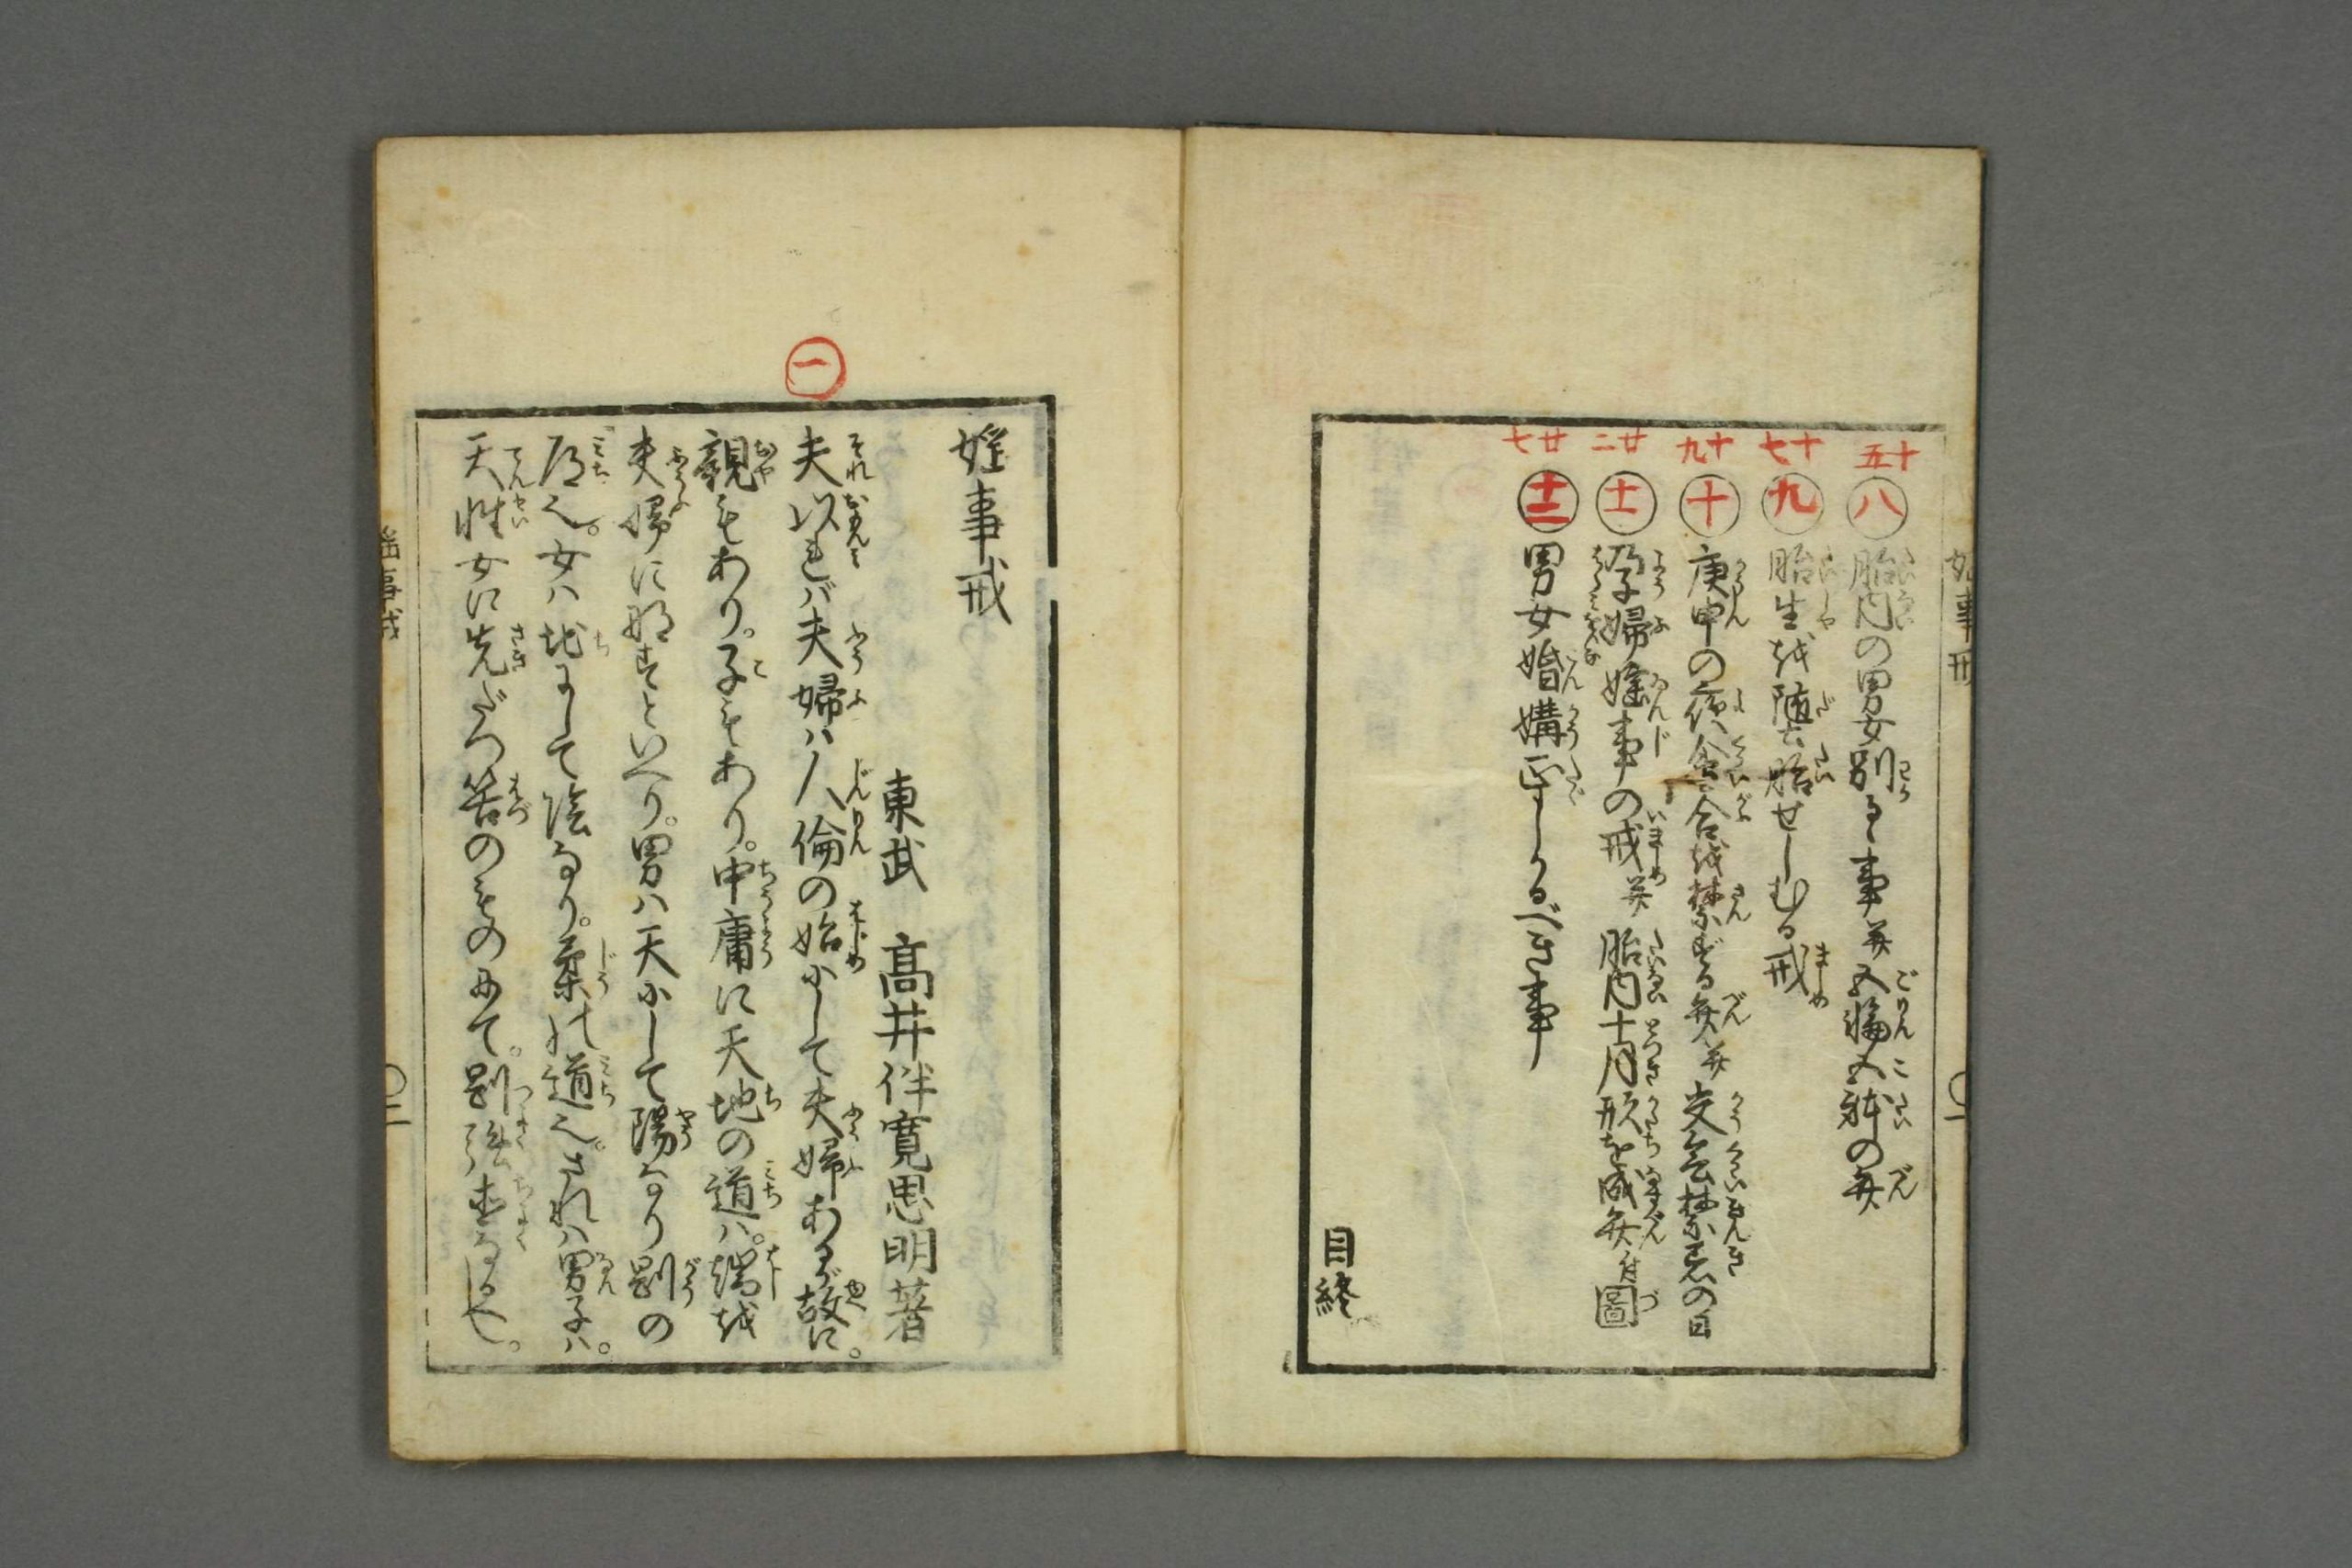 十五
八 胎内の男女別る事并五輪五体の弁
十七
九 胎生を随㐫胎せしむる戒
十九
十 庚申の夜会合を禁ずる弁并交会禁忌の日
廿二
十一 孕婦婬事の戒并胎内十月形を成弁付圖
廿七
十二 男女婚媾正しかるべき事
目終
婬事戒
東武 高井伴寛思明著
一
夫以れバ夫婦ハ人倫の始にして夫婦あるが故に。
親もあり。子もあり。中庸に天地の道ハ。端を
夫婦に起すといへり。男ハ天にして陽なり剛の
道也。女ハ地にして陰なり。柔の道也。されハ男子ハ。
天性女に先だつ筈のものにて。剛強直なるべし。